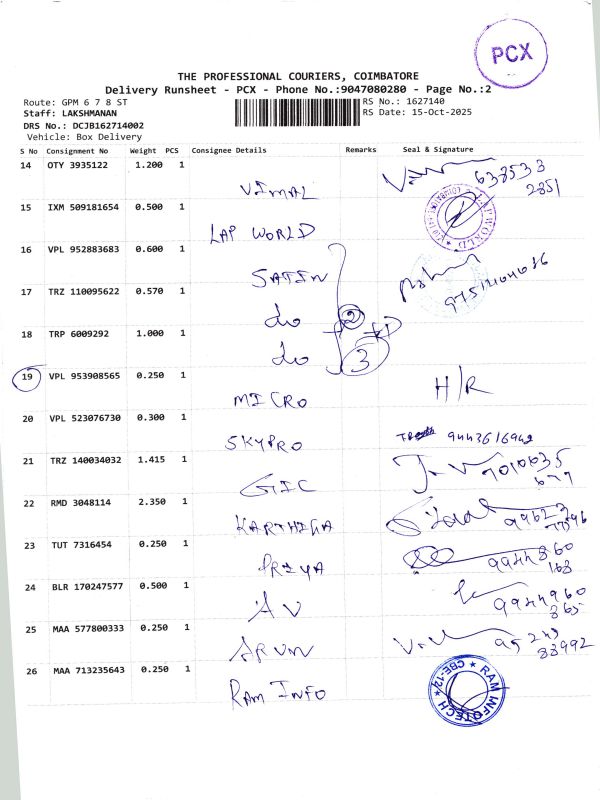 PCX
THE PROFESSIONAL COURIERS, COIMBATORE
Delivery Runsheet - PCX - Phone No.:9047080280 - Page No.:2
Route: GPM 6 7 8 ST
RS No.: 1627140
Staff: LAKSHMANAN
RS Date: 15-Oct-2025
DRS No.: DCJB162714002
Vehicle: Box Delivery
S No Consignment No Weight PCS Consignee Details Remarks Seal & Signature
14 OTY 3935122 1.200 1
VIMAL 638533
2851
15 IXM 509181654 0.500 1
LAP WORLD
LAP WORLD
16 VPL 952883683 0.600 1
SATIN
17 TRZ 110095622 0.570 1
do 2
18 TRP 6009292 1.000 1
do 3
19 VPL 953908565 0.250 1
MICRO H/R
20 VPL 523076730 0.300 1
SKYPRO 9443616942
21 TRZ 140034032 1.415 1
GIC 7010635
677
22 RMD 3048114 2.350 1
KARTHIGA 99623
77396
23 TUT 7316454 0.250 1
PRIYA 9944860
168
24 BLR 170247577 0.500 1
AV 9944960
865
25 MAA 577800333 0.250 1
ARUN 95249
83992
26 MAA 713235643 0.250 1
RAM INFO
RAM INFOTECH
CBE-12